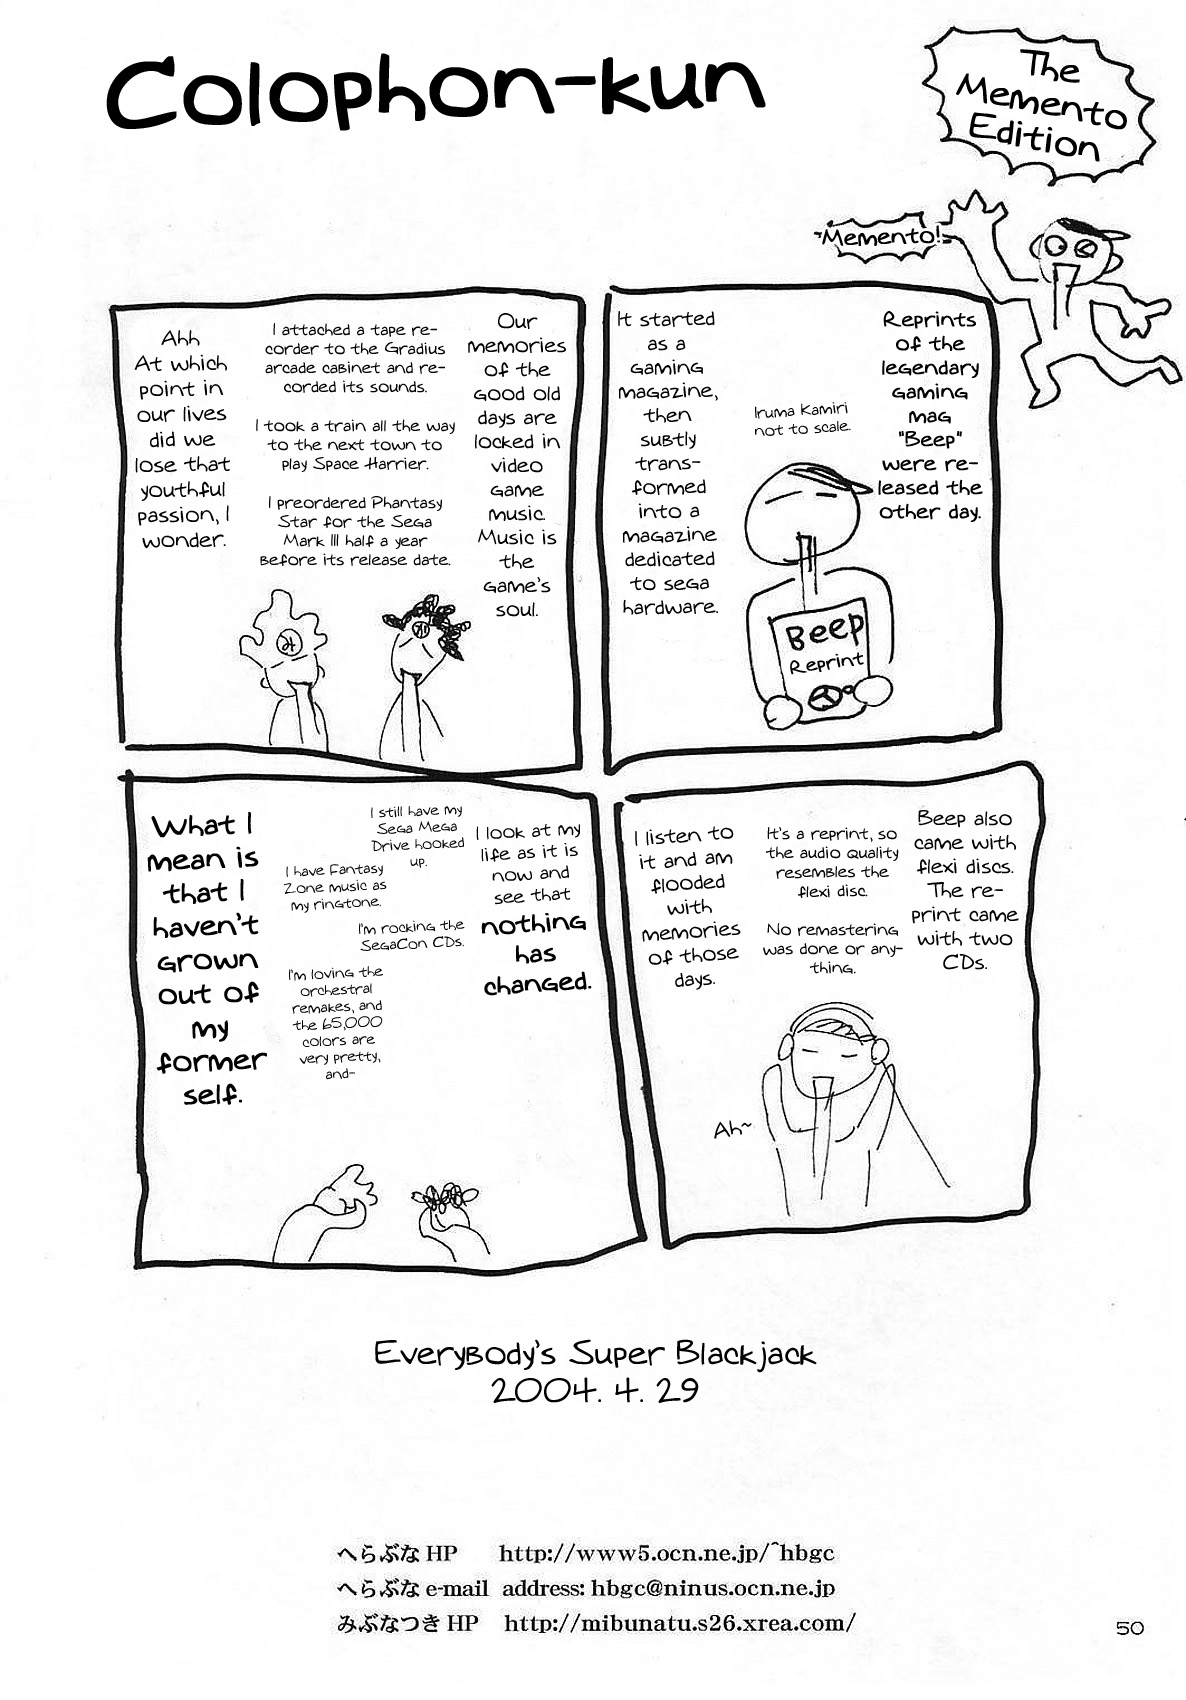 Colophon-kun
The
Memento
Edition
~Memento!~
Reprints
of the
legendary
gaming
mag
"Beep"
were re-
leased the
other day.
Iruma Kamiri
not to scale.
Beep
Reprint
It started
as a
gaming
magazine,
then
subtly
trans-
formed
into a
magazine
dedicated
to sega
hardware.
Our
memories
of the
good old
days are
locked in
video
game
music.
Music is
the
game's
soul.
I attached a tape re-
corder to the Gradius
arcade cabinet and re-
corded its sounds.
I took a train all the way
to the next town to
play Space Harrier.
I preordered Phantasy
Star for the Sega
Mark III half a year
before its release date.
Ahh
At which
point in
our lives
did we
lose that
youthful
passion, I
wonder.
Beep also
came with
flexi discs.
The re-
print came
with two
CDs.
It's a reprint, so
the audio quality
resembles the
flexi disc.
No remastering
was done or any-
thing.
I listen to
it and am
flooded
with
memories
of those
days.
Ah~
I look at my
life as it is
now and
see that
nothing
has
changed.
I still have my
Sega Mega
Drive hooked
up.
I have Fantasy
Zone music as
my ringtone.
I'm rocking the
SegaCon CDs.
I'm loving the
orchestral
remakes, and
the 65,000
colors are
very pretty,
and-
What I
mean is
that I
haven't
grown
out of
my
former
self.
Everybody's Super Blackjack
2004. 4. 29
へらぶな HP http://www5.ocn.ne.jp/~hbgc
へらぶな e-mail address: hbgc@ninus.ocn.ne.jp
みぶなつき HP http://mibunatu.s26.xrea.com/
50